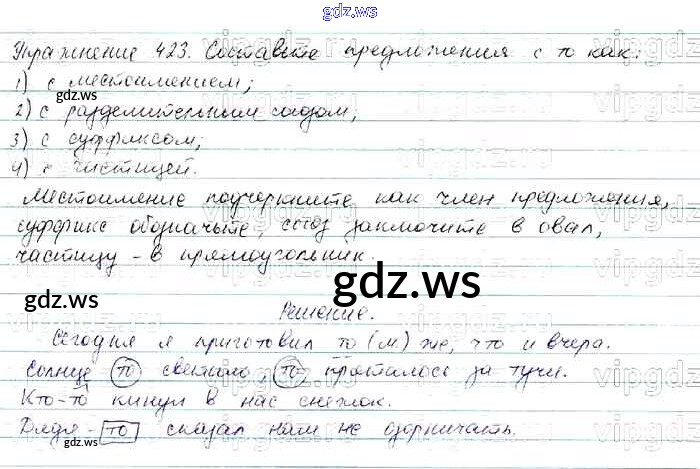 gdz.ws
Упражнение 423. Составьте предложения с то как:
1) с местоимением;
gdz.ws
2) с разделительным союзом;
3) с суффиксом;
4) с частицей.
Местоимение подчеркните как член предложения,
суффикс обозначьте, союз заключите в овал,
частицу - в прямоугольник.
gdz.ws
gdz.ws
Решение.
Сегодня я приготовил то (м) же, что и вчера.
Солнце то светило, то пряталось за тучи.
Кто-то кинул в нас снежок.
gdz.ws
Дядя-то сказал нам не озорничать.
gdz.ws